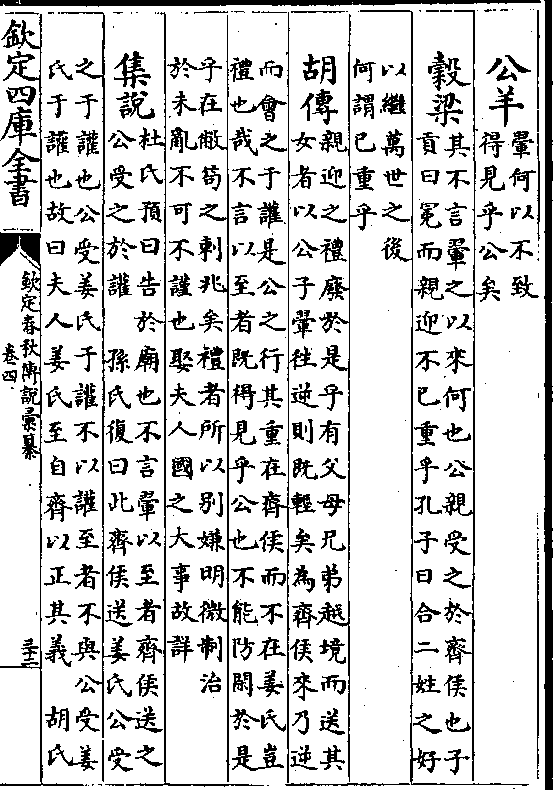 公羊 翬何以不致
得見乎公矣
穀梁 其不言翬之以來何也公親受之於齊侯也子
貢曰冕而親迎不已重乎孔子曰合二姓之好
以繼萬世之後
何謂已重乎
胡傳 親迎之禮廢於是乎有父母兄弟越境而送其
女者以公子翬往逆則既輕矣為齊侯來乃逆
而會之于讙是公之行其重在齊侯而不在姜氏豈
禮也哉不言以至者既得見乎公也不能防閑於是
乎在敝笱之刺兆矣禮者所以别嫌明微制治
於未亂不可不謹也娶夫人國之大事故詳
集說 杜氏預曰告於廟也不言翬以至者齊侯送之
公受之於讙 孫氏復曰此齊侯送姜氏公受
之于讙也公受姜氏于讙不以讙至者不與公受姜
氏于讙也故曰夫人姜氏至自齊以正其義 胡氏
欽定四庫全書
欽定春秋傳說彙纂
卷四